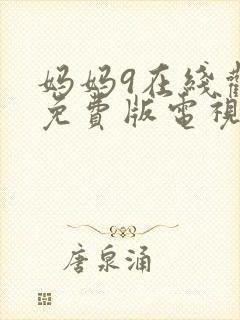 妈妈9在綫觀
免費版電視
唐泉涌